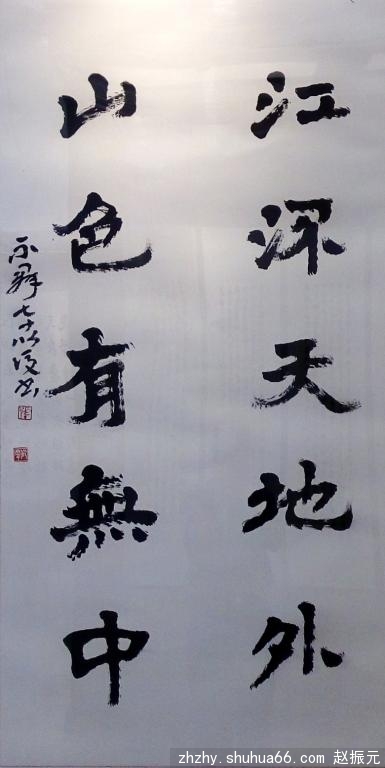 江流天地外
山色有無中
七十以後书
zhzhy.shuhua66.com 赵振元